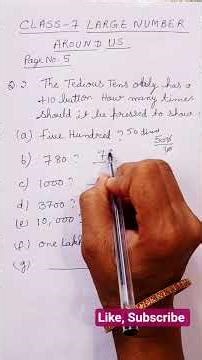 CLASS-7 LARGE NUMBER
AROUND US
Page No. 5
Q.2 The Tedious Tens only has a
+10 button How many times
should it be pressed to show:
(a) Five Hundred ? 50
500
10
b) 780 ?
c) 1000 ?
d) 3700 ?
(e) 10,000 ?
(f) one Lakh
(g)
Like, Subscribe